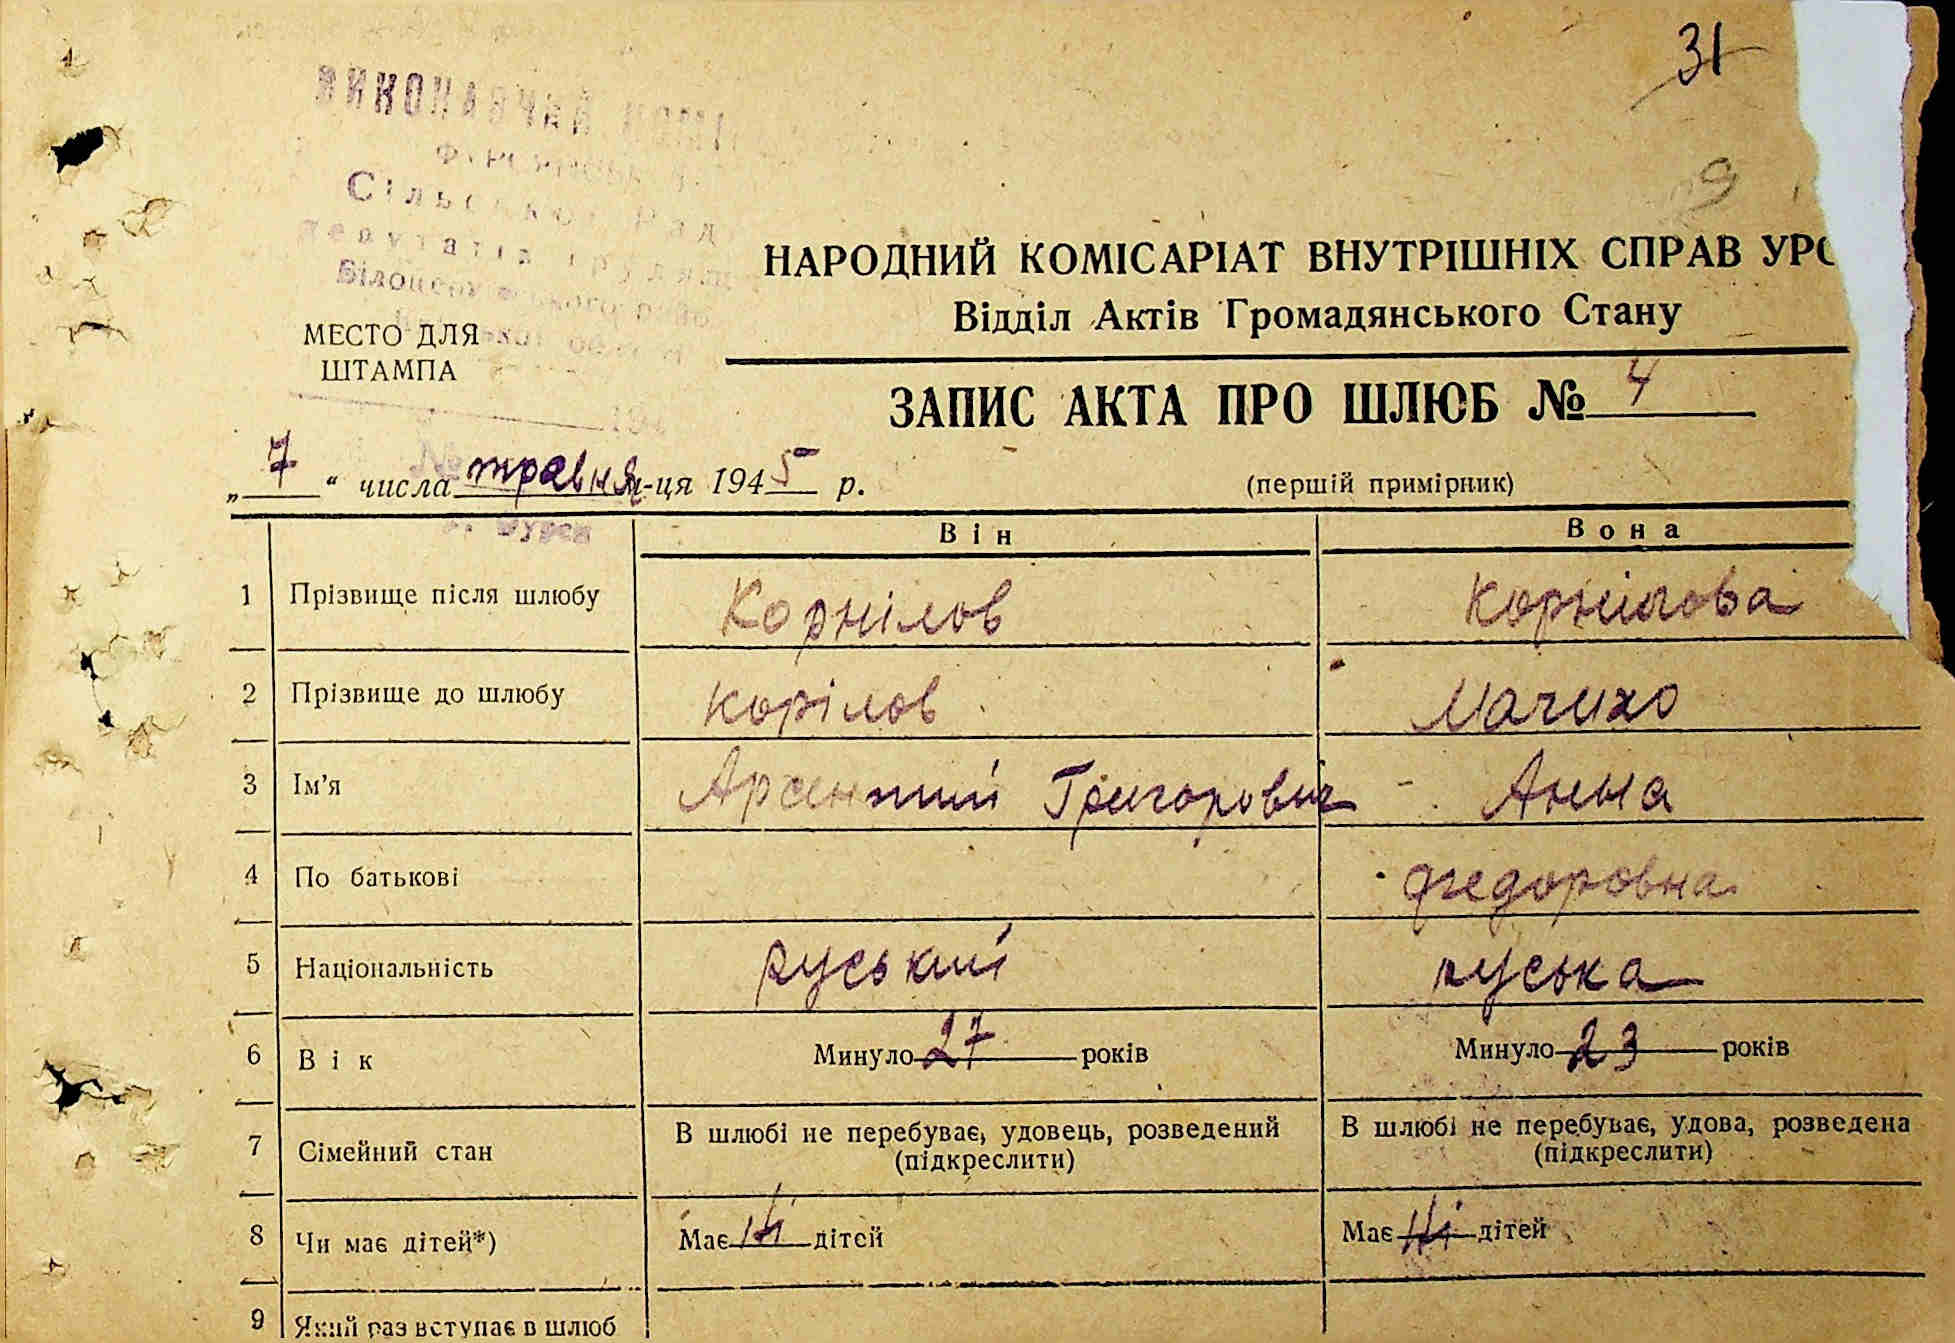 31
ВИКОНАВЧИЙ
НАРОДНИЙ КОМІСАРІАТ ВНУТРІШНІХ СПРАВ УРС
Відділ Актів Громадянського Стану
МЕСТО ДЛЯ
ШТАМПА
ЗАПИС АКТА ПРО ШЛЮБ № 4
„ 7 “ числа травня м-ця 1945 р. (першій примірник)
Він Вона
1 Прізвище після шлюбу Корнілов Корнілова
2 Прізвище до шлюбу Корілов Мачихо
3 Ім’я Арсентий Григорович Анна
4 По батькові Федоровна
5 Національність руський руська
6 Вік Минуло 27 років Минуло 23 років
7 Сімейний стан В шлюбі не перебуває, удовець, розведений (підкреслити) В шлюбі не перебуває, удова, розведена (підкреслити)
8 Чи має дітей*) Має ні дітей Має ні дітей
9 Який раз вступає в шлюб